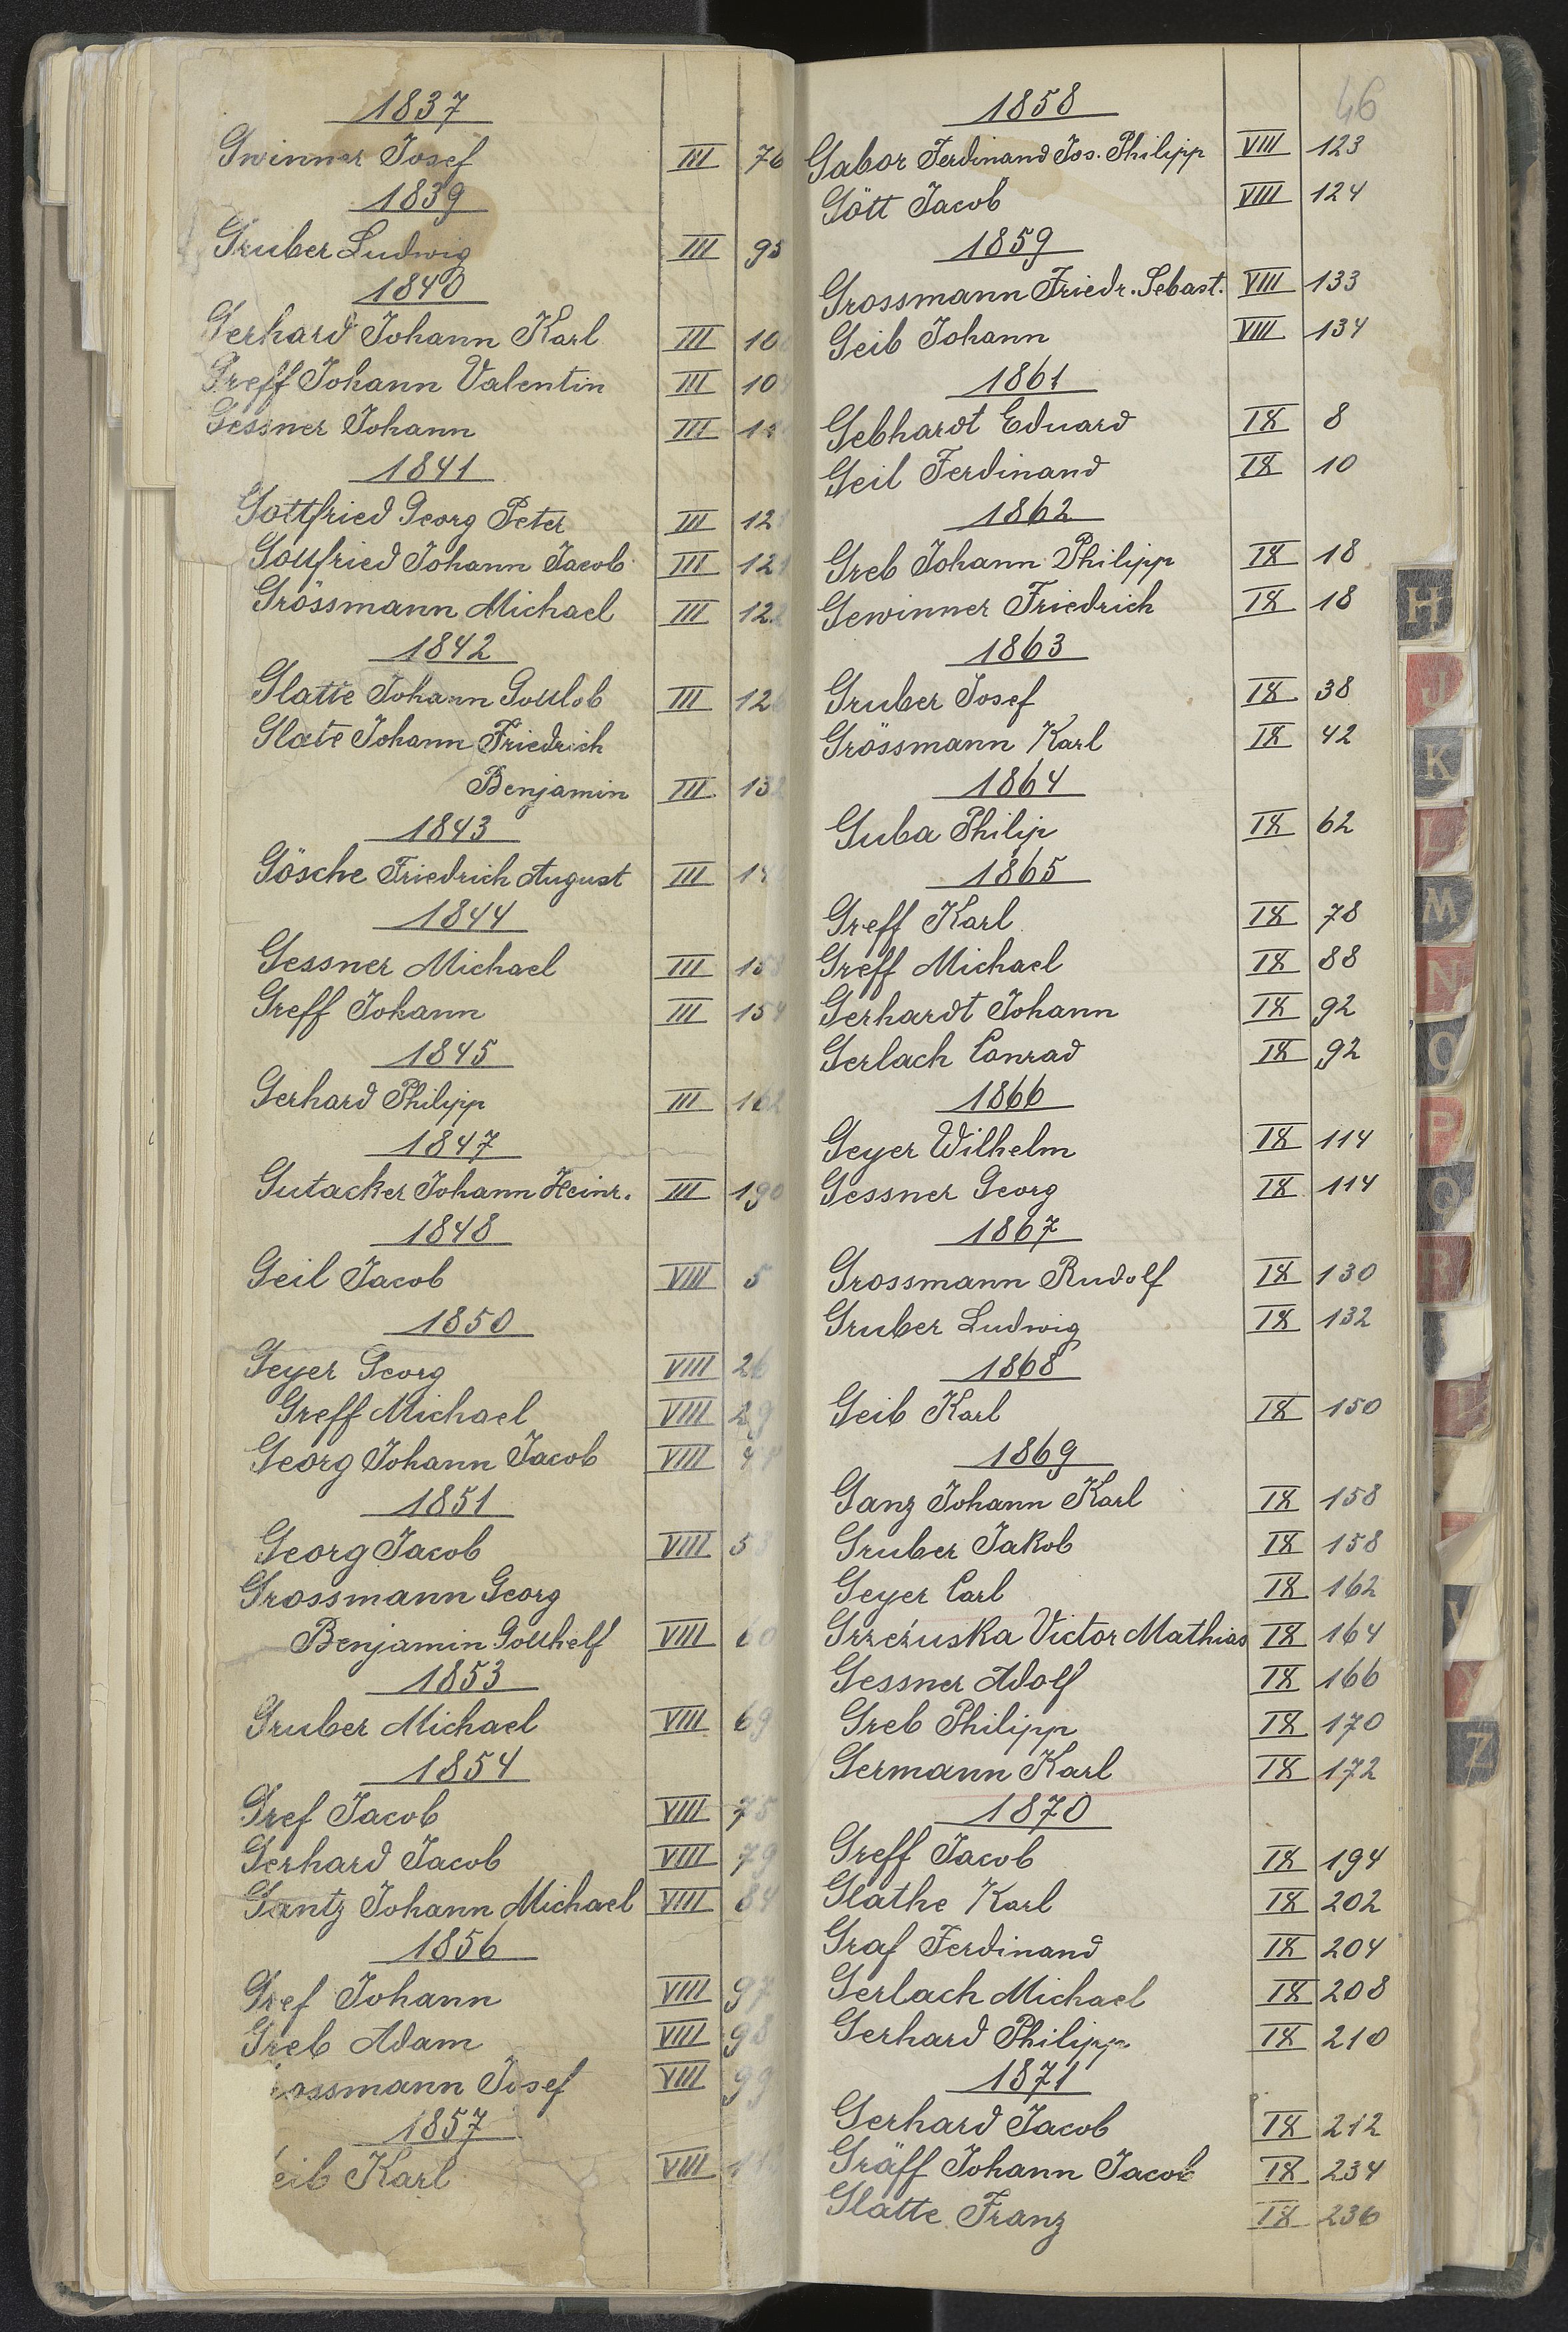 1837
Gwinner Josef III 76
1839
Gruber Ludwig III 95
1840
Gerhard Johann Karl III
Greff Johann Valentin III
Gessner Johann III
1841
Gottfried Georg Peter III
Gottfried Johann Jacob III 121
Grössmann Michael III 122
1842
Glatte Johann Gottlob III 126
Glate Johann Friedrich
Benjamin III 132
1843
Gösche Friedrich August III
1844
Gessner Michael III 153
Greff Johann III 154
1845
Gerhard Philipp III 162
1847
Gutacker Johann Heinr. III 190
1848
Geil Jacob VIII 5
1850
Geyer Georg VIII 26
Greff Michael VIII 29
Georg Johann Jacob VIII
1851
Georg Jacob VIII 53
Grossmann Georg
Benjamin Gotthelf VIII 60
1853
Gruber Michael VIII 69
1854
Gref Jacob VIII 75
Gerhard Jacob VIII 79
Gantz Johann Michael VIII 84
1856
Gref Johann VIII 97
Greb Adam VIII 98
ossmann Josef VIII 99
1857
eib Karl VIII
46
1858
Gabor Ferdinand Jos. Philipp VIII 123
Gött Jacob VIII 124
1859
Grossmann Friedr. Sebast. VIII 133
Geib Johann VIII 134
1861
Gebhardt Eduard IX 8
Geil Ferdinand IX 10
1862
Greb Johann Philipp IX 18
Gewinner Friedrich IX 18
1863
Gruber Josef IX 38
Grössmann Karl IX 42
1864
Guba Philip IX 62
1865
Greff Karl IX 78
Greff Michael IX 88
Gerhardt Johann IX 92
Gerlach Conrad IX 92
1866
Geyer Wilhelm IX 114
Gessner Georg IX 114
1867
Grossmann Rudolf IX 130
Gruber Ludwig IX 132
1868
Geib Karl IX 150
1869
Ganz Johann Karl IX 158
Gruber Jakob IX 158
Geyer Carl IX 162
Grzeźuska Victor Mathias IX 164
Gessner Adolf IX 166
Greb Philipp IX 170
Germann Karl IX 172
1870
Greff Jacob IX 194
Glathe Karl IX 202
Graf Ferdinand IX 204
Gerlach Michael IX 208
Gerhard Philipp IX 210
1871
Gerhard Jacob IX 212
Gräff Johann Jacob IX 234
Glatte Franz IX 236
H
J
K
L
M
N
O
P
Q
R
V
Z